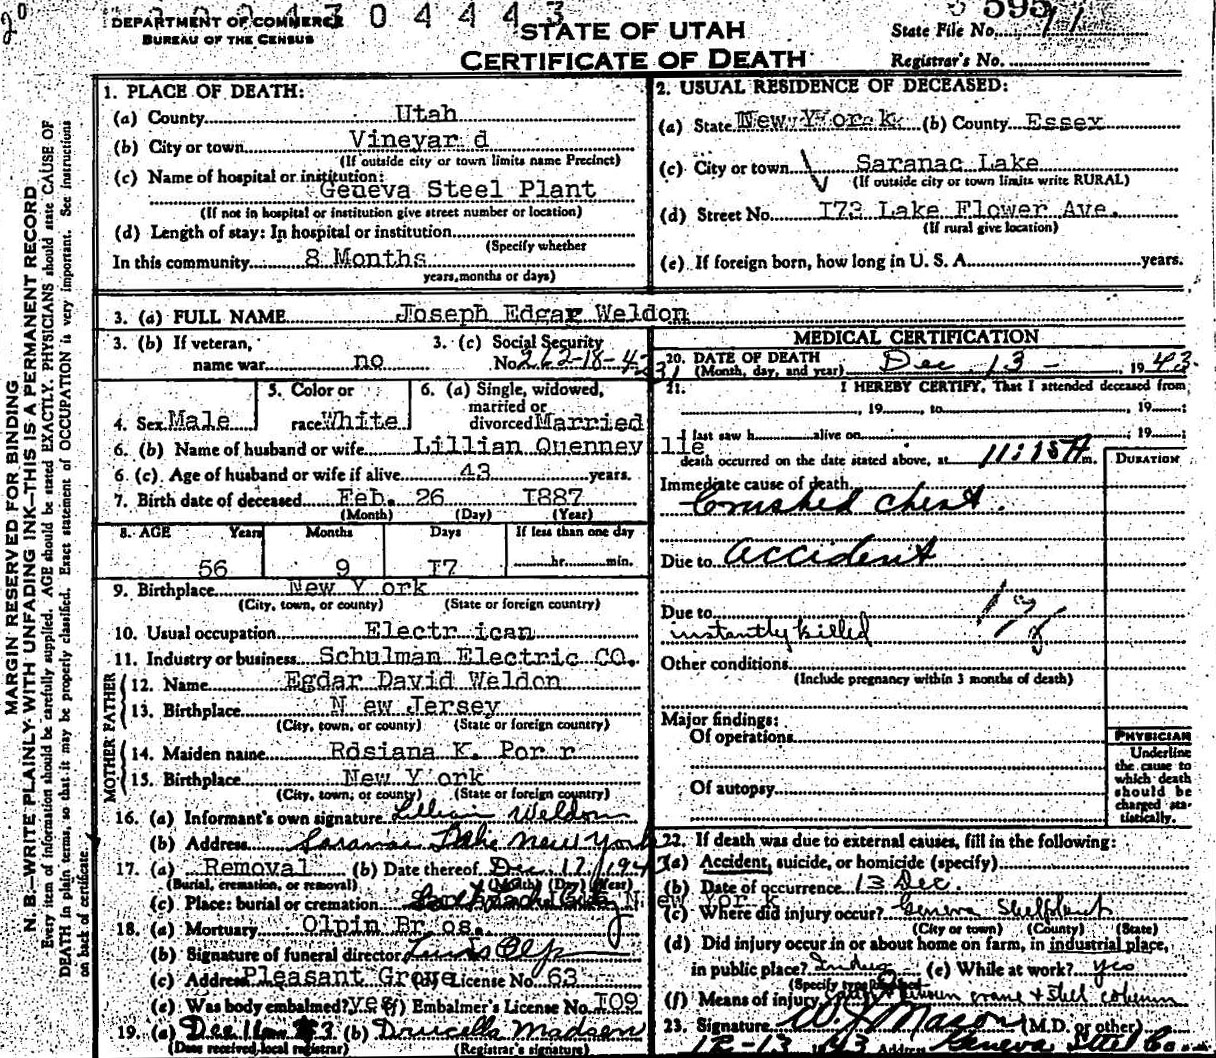 DEPARTMENT OF COMMERCE
BUREAU OF THE CENSUS
STATE OF UTAH
CERTIFICATE OF DEATH
State File No.
Registrar's No.
MARGIN RESERVED FOR BINDING
N. B.—WRITE PLAINLY WITH UNFADING INK—THIS IS A PERMANENT RECORD
Every item of information should be carefully supplied. AGE should be stated EXACTLY. PHYSICIANS should state CAUSE OF
DEATH in plain terms, so that it may be properly classified. Exact statement of OCCUPATION is very important. See instructions
on back of certificate.
1. PLACE OF DEATH:
(a) County Utah
(b) City or town Vineyar d
(If outside city or town limits name Precinct)
(c) Name of hospital or institution:
Geneva Steel Plant
(If not in hospital or institution give street number or location)
(d) Length of stay: In hospital or institution
(Specify whether
In this community 8 Months
years, months or days)
2. USUAL RESIDENCE OF DECEASED:
(a) State New York (b) County Essex
(c) City or town Saranac Lake
(If outside city or town limits write RURAL)
(d) Street No. I73 Lake Flower Ave.
(If rural give location)
(e) If foreign born, how long in U. S. A. years.
3. (a) FULL NAME Joseph Edgar Weldon
3. (b) If veteran, name war no
3. (c) Social Security No. 262-18-4231
4. Sex Male
5. Color or race White
6. (a) Single, widowed, married or divorced Married
6. (b) Name of husband or wife Lillian Quennev ille
6. (c) Age of husband or wife if alive 43 years.
7. Birth date of deceased Feb. 26 I887
(Month) (Day) (Year)
8. AGE Years Months Days If less than one day
56 9 I7 hr. min.
9. Birthplace New Y ork
(City, town, or county) (State or foreign country)
10. Usual occupation Electr ican
11. Industry or business Schulman Electric CO.
FATHER
12. Name Egdar David Weldon
13. Birthplace N ew Jersey
(City, town, or county) (State or foreign country)
MOTHER
14. Maiden name Rosiana K. Por r
15. Birthplace New Y ork
(City, town, or county) (State or foreign country)
16. (a) Informant's own signature Lillian Weldon
(b) Address Saranac Lake New York
17. (a) Removal (b) Date thereof Dec 17/1943
(Burial, cremation, or removal) (Month) (Day) (Year)
(c) Place: burial or cremation N ew Yor k
18. (a) Mortuary Olpin Br os.
(b) Signature of funeral director
(c) Address Pleasant Grove License No. 63
(e) Was body embalmed? yes (f) Embalmer's License No. I09
19. (a) Dec (b) Drucella Madsen
(Date received local registrar) (Registrar's signature)
MEDICAL CERTIFICATION
20. DATE OF DEATH Dec 13 1943
(Month, day, and year)
21. I HEREBY CERTIFY, That I attended deceased from
, 19 , to , 19 ;
I last saw h alive on , 19 ;
death occurred on the date stated above, at 11:15A m.
DURATION
Immediate cause of death
Crushed chest.
Due to accident
Due to
instantly killed
Other conditions
(Include pregnancy within 3 months of death)
Major findings:
Of operations
Of autopsy
PHYSICIAN
Underline
the cause to
which death
should be
charged sta-
tistically.
22. If death was due to external causes, fill in the following:
(a) Accident, suicide, or homicide (specify)
(b) Date of occurrence 13 Dec.
(c) Where did injury occur? Geneva Steel plant
(City or town) (County) (State)
(d) Did injury occur in or about home on farm, in industrial place,
in public place? (e) While at work? yes
(Specify type of place)
(f) Means of injury crane & steel column
23. Signature W J Mason (M.D. or other)
12-13 1943 Address Geneva Steel Co.